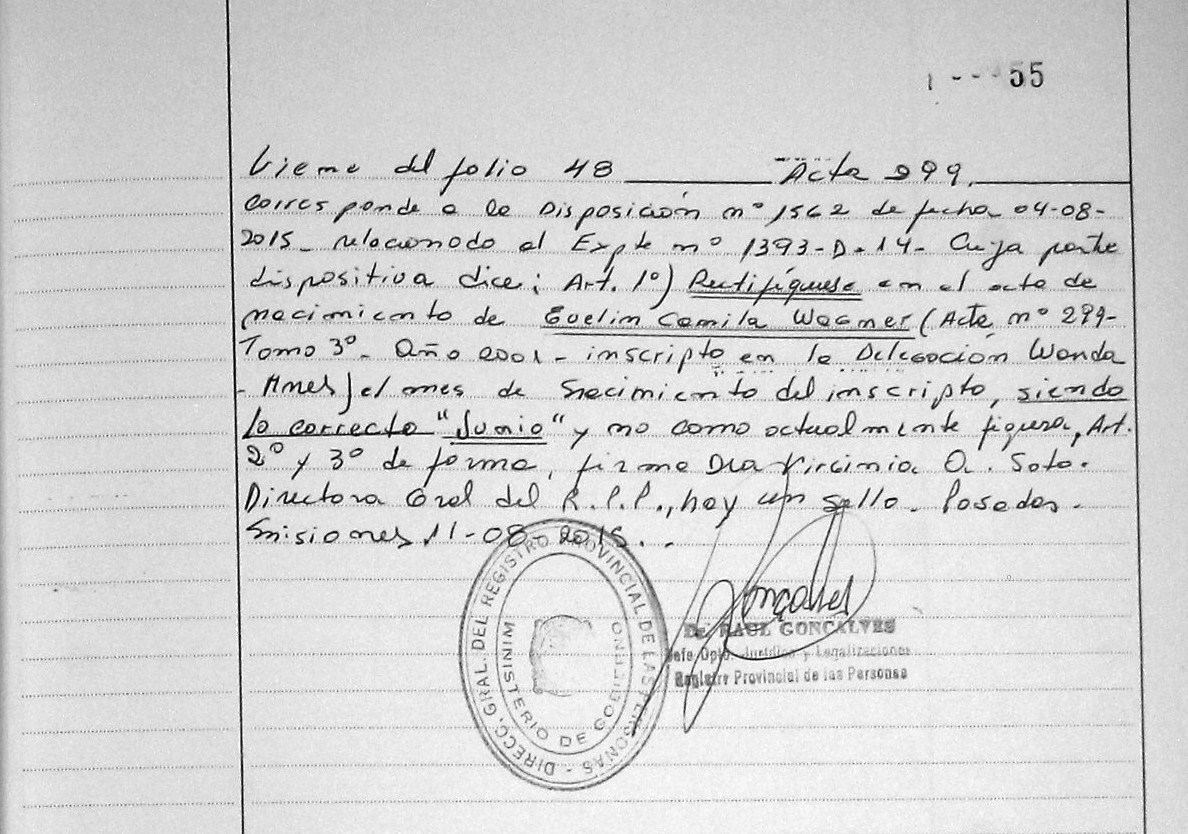 55
Viene del folio 48 Acta 299.
corresponde a la Disposición nº 1562 de fecha 04-08-
2015- relacionado al Expte nº 1393-D-14- Cuya parte
dispositiva dice: Art. 1º) Rectifíquese en el acta de
nacimiento de Evelin Camila Wagner (Acta nº 299-
Tomo 3º- Año 2001- inscripto en la Delegación Wanda
- Mnes) el mes de nacimiento del inscripto, siendo
lo correcto "Junio" y no como actualmente figura, Art.
2º y 3º de forma, firma Dra Virginia A. Soto.
Directora Gral del R.P.P., hay un sello. Posadas.
Misiones 11-08-2015..
DIRECC. GRAL. DEL REGISTRO PROVINCIAL DE LAS PERSONAS -
MINISTERIO DE GOBIERNO
Goncalves
Dr. RAUL GONCALVES
Jefe Dpto. Jurídico y Legalizaciones
Registro Provincial de las Personas